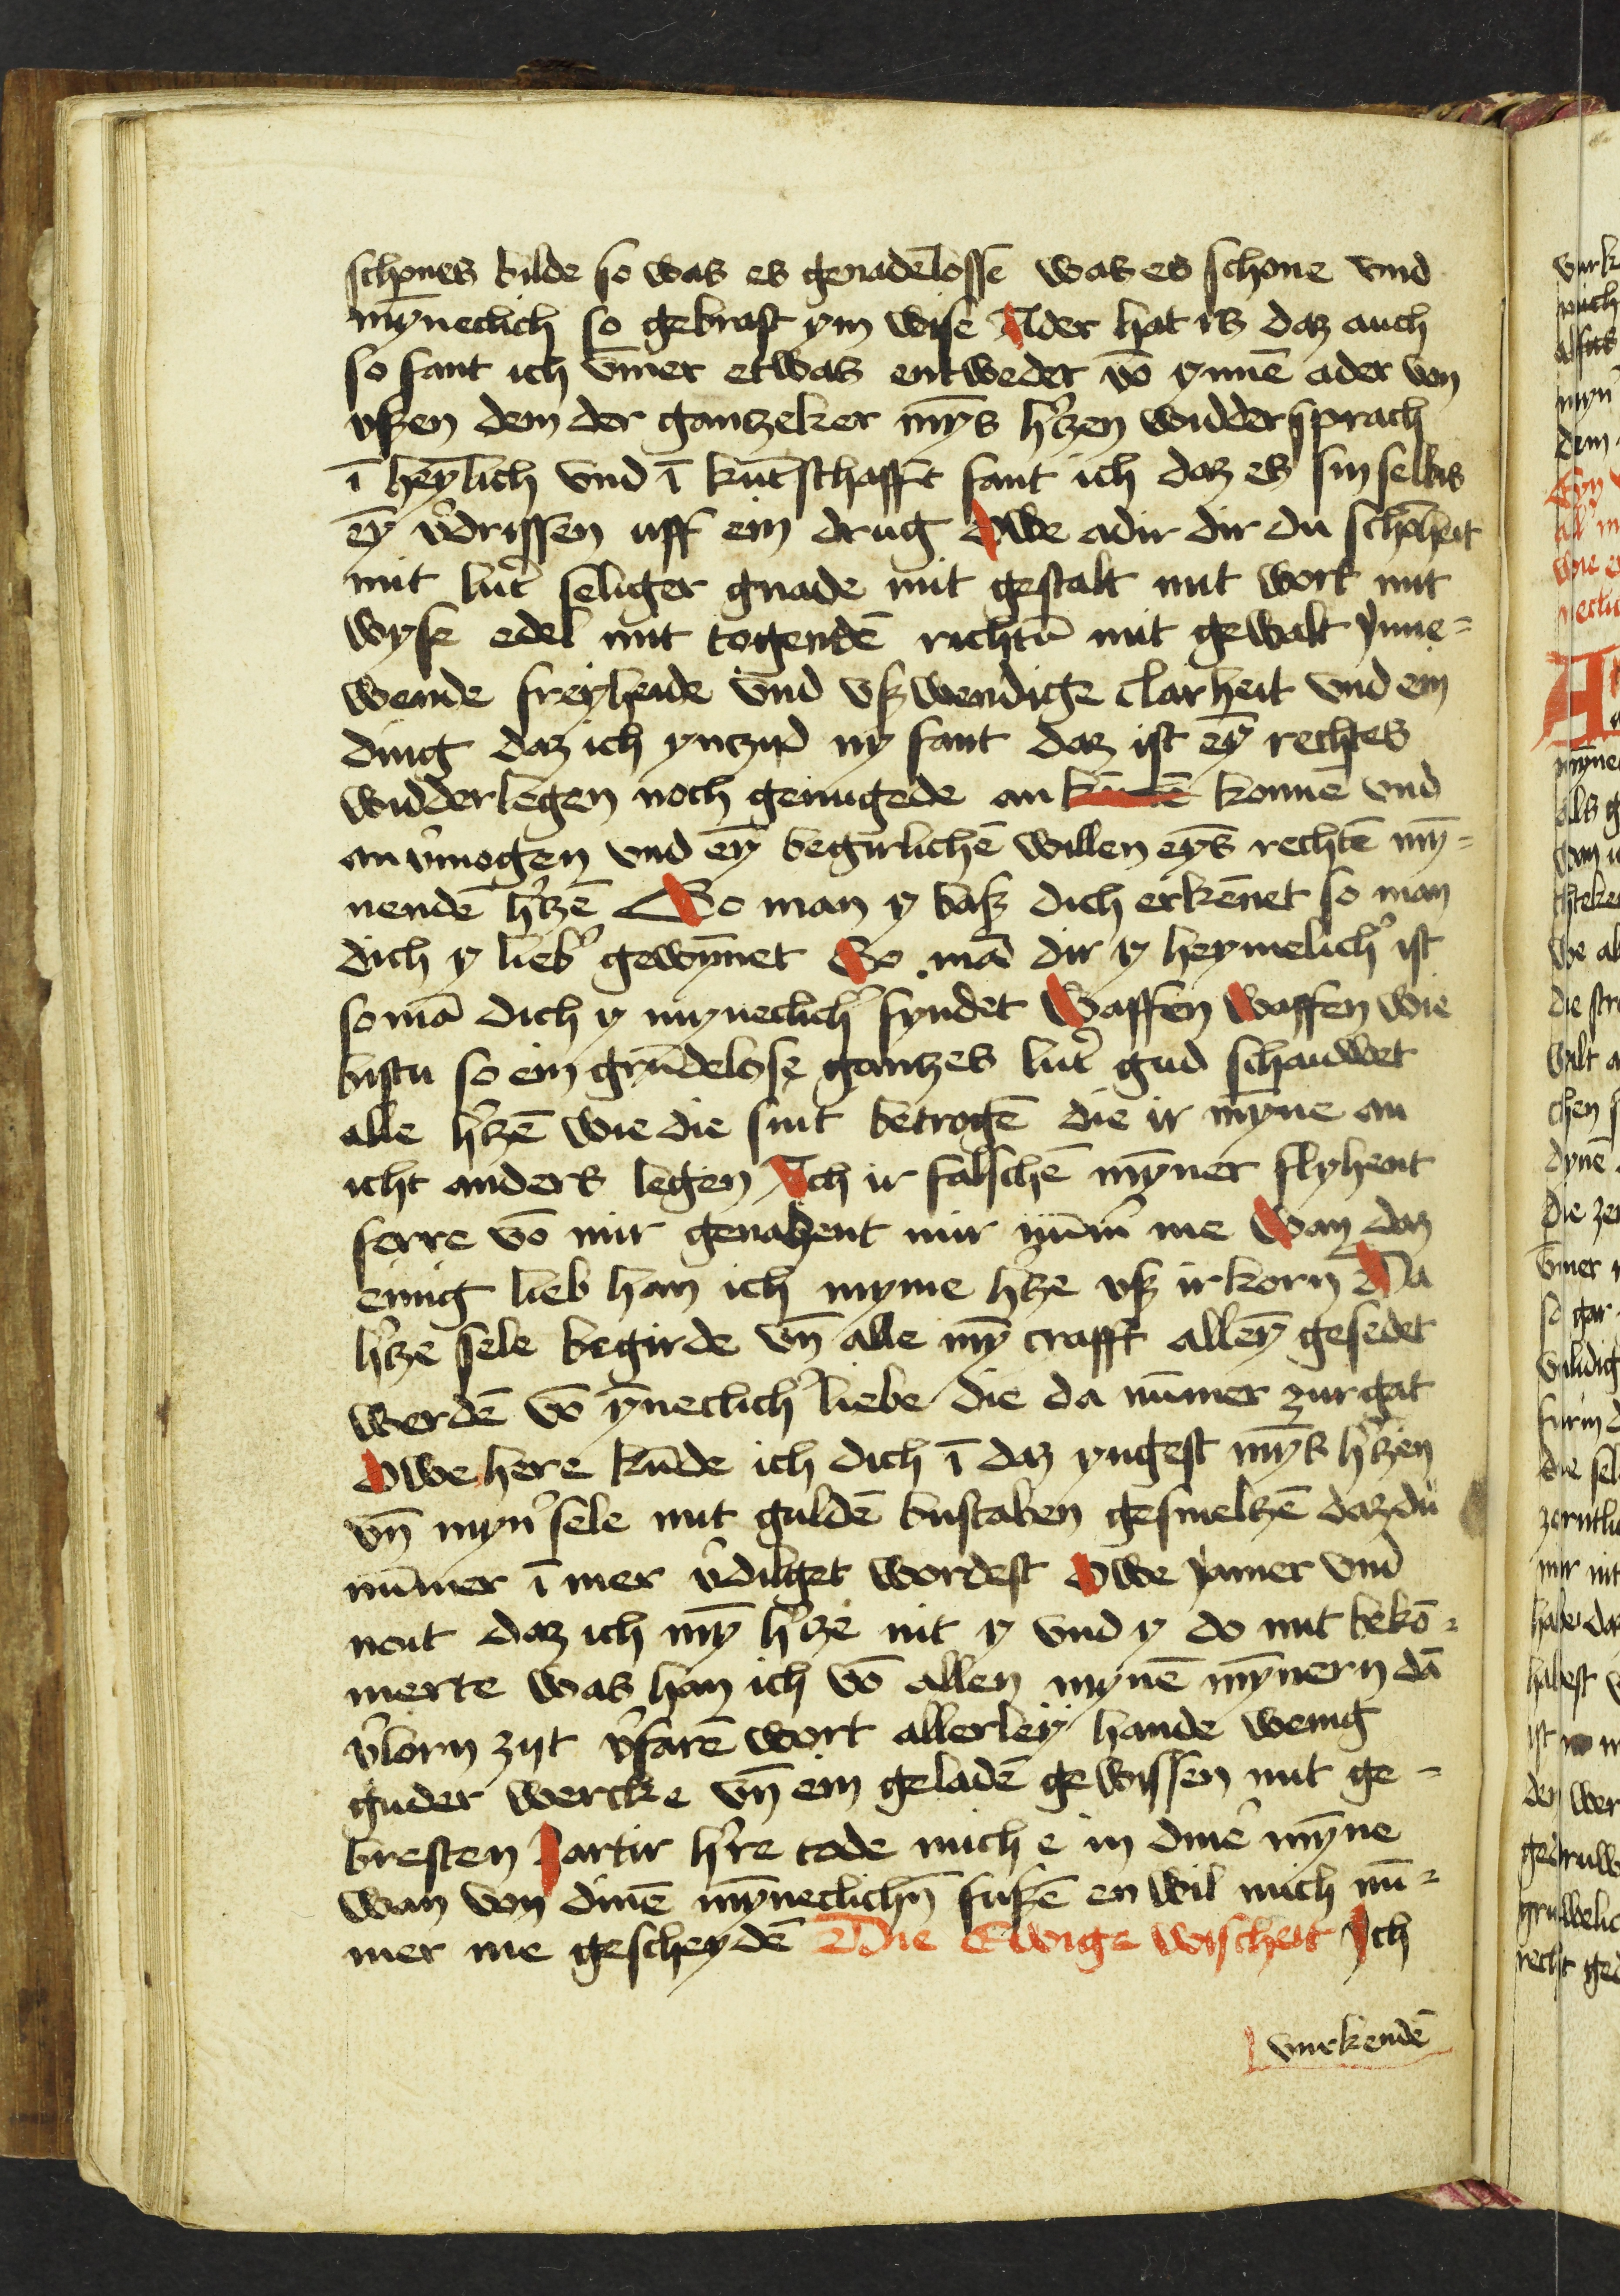 schones bilde so was es genadēlosse was es schone vnd
mȳneclich so gebrast ym wise Ader hat is daz auch
so fant ich v̄mer etwas entweder vō ynnē ader von
vßen dem der gantzeker mȳs h'tzen widder sprach
ī heȳlich vnd ī kūtschafft fant ich daz es sin selbis
eȳ v'drissen uff ein drug Owe adir dir du schōheit
mit lut' seliger gnade mit gestalt mit wort mit
wyse edel mit togendē richtū mit gewalt ynne=
wende freyheide vnd vßwendige clarheit vnd ein
ding daz ich ynczijd ny fant daz ist eȳ rechtes
widderlegen noch genugede an konnē vnd
an v'mogen vnd eȳ begirlichē willen eȳs rechtē mȳ=
nendē h'tzē So man y baß dich erkēnet so man
dich y lieb' gewȳnet So mā dir y heymelich' ist
so mā dich y mynēclich' fyndet Waffen Waffen wie
bistu so ein grūdelose gantzes lut' gud schauwet
alle h'tzē wie die sint betrogē die ir mȳne an
icht anders legen Ach ir falschē mȳner flyhent
ferre vō mir genahent mir nūm' me Wan daz
einig lieb han ich myme h'tze vß irkorn Da
h'tze sele begirde vn̄ alle mȳ crafft alleȳ gesedet
werdē vō ȳneclich' liebe die da nūmer zurgat
Owe here kūde ich dich ī daz yngest mȳs h'tzen
vn̄ myn' sele mit guldē bustaben gesmeltzē daz du
nūmer ī mer v'dilget wordest Owe yamer vnd
noit daz ich mȳ h'tze nit y vnd y do mit bekō=
merte was han ich vō allen mynē mȳnern dā
v'lorn zijt v'farē wort allerley hande wenig
guder wercke vn̄ ein geladē gewissen mit ge=
bresten Zartir h're tode mich e in dine' mȳne
wan von dinē mȳneclichn̄ fußē en wil mich nū=
mer me gescheydē Die Ewige wischeit Ich
vurkendē